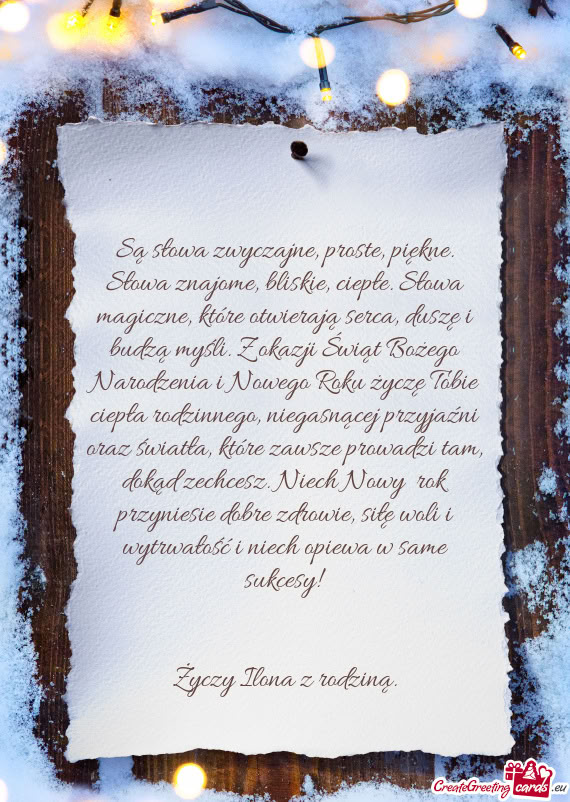 Są słowa zwyczajne, proste, piękne.
Słowa znajome, bliskie, ciepłe. Słowa
magiczne, które otwierają serca, duszę i
budzą myśli. Z okazji Świąt Bożego
Narodzenia i Nowego Roku życzę Tobie
ciepła rodzinnego, niegasnącej przyjaźni
oraz światła, które zawsze prowadzi tam,
dokąd zechcesz. Niech Nowy rok
przyniesie dobre zdrowie, siłę woli i
wytrwałość i niech opiewa w same
sukcesy!
Życzy Ilona z rodziną.
CreateGreeting cards .eu